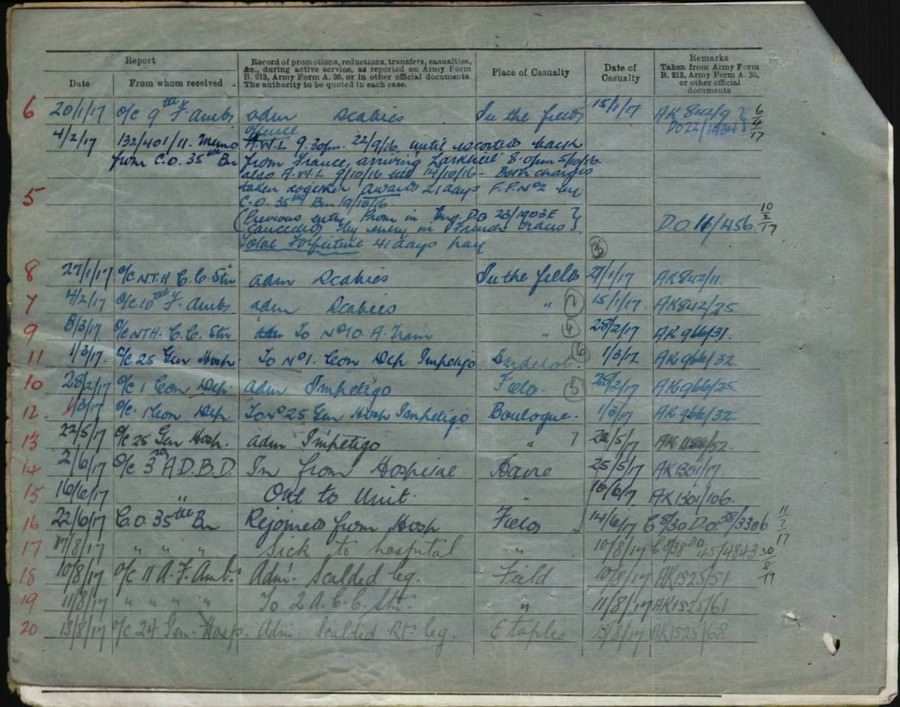 Report
Record of promotions, reductions, transfers, casualties, &c., during active service, as reported on Army Form B. 213, Army Form A. 36, or in other official documents. The authority to be quoted in each case.
Place of Casualty
Date of Casualty
Remarks Taken from Army Form B. 213, Army Form A. 36, or other official documents
Date From whom received
6 20/1/17 O/C 9th F. Amb. adm Scabies In the field 15/1/17 AK 842/9
4/2/17 132/401/11. Memo offence
from C.O. 35th Bn A.W.L 9.30pm. 22/9/16 until escorted back
from France, arriving Larkhill 8.0pm 5/10/16
also A.W.L 9/10/16 till 14/10/16 - Both charges
5 taken together awards 21 days F.P. No 2 by
C.O. 35th Bn 19/10/16
(Previous entry Prom in Eng. D.O. 23/1903E D.O 16/456 10/2/17
cancelled
Total Forfeiture 41 days pay
8 27/1/17 O/C N.T.H C.C. Stn adm Scabies In the field (3) /1/17 AK842/11
7 4/2/17 O/C 10th F. Amb. adm Scabies " (2) 15/1/17 AK842/25
9 8/3/17 O/C N.T.H. C.C. Stn To No 10 A. Train " (4) 28/2/17 AK 966/31
11 1/3/17. O/C 25 Gen Hosp. To No 1. Con Dep Impetigo (6) 1/3/17 AK 966/32
10 28/2/17 O/C 1 Con Dep. adm Impetigo Field (5) /2/17 AK966/25
12. 1/3/17 O/C. 1 Con Dep To No 25 Gen Hosp Impetigo Boulogne. 1/3/17 AK 966/32
13 22/5/17 O/C 25 Gen Hosp. adm Impetigo " 7 22/5/17 AK /52
14 2/6/17 O/C 3rd A.D.B.D In from Hospital Havre 25/5/17 AK1301/17
15 16/6/17 " Out to Unit. " 16/6/17 AK1301/106
16 22/6/17 C.O. 35th Bn Rejoined from Hosp Field 14/6/17 D.O. 38/3306 11/7/17
17 17/8/17 " " " Sick to hospital " 10/8/17 45/4843 30/8/17
18 10/8/17 O/C 11 A. F. Amb. Adm. Scalded leg. Field 10/8/17 AK1525/51
19 11/8/17 " " " " To 2 A. C. C. Stn. " 11/8/17 AK1525/61
20 13/8/17 O/C 24. Gen. Hosp. Adm. Scalded Rt. leg. Etaples 12/8/17 AK1525/68